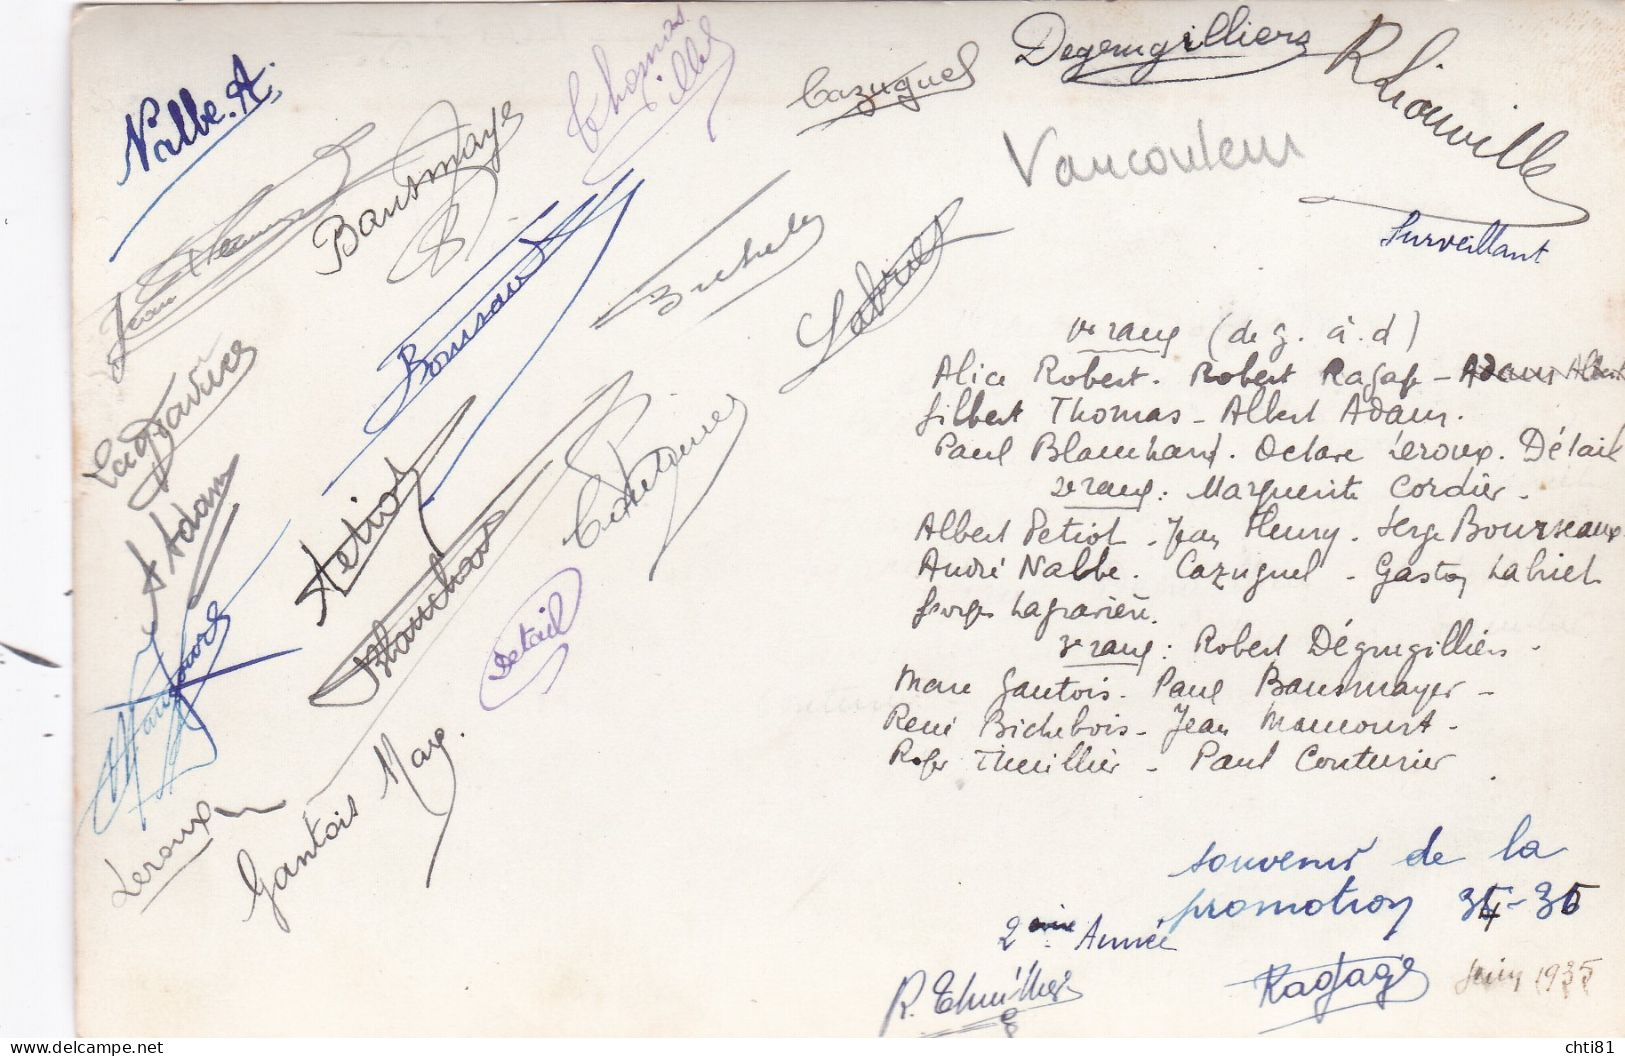 Nalbe. A.
Thomas
Cazuguel
Degrugilliers
R Liouville
Vaucouleur
Surveillant
Bausmayer
Jean
Labriet
Lagravière
A Adam
A Petiot
Blanchard
Couturier
Detail
Leroux
Gantois Marc.
1er rang (de g. à d)
Alice Robert. Robert Ragage - Adam Albert
Gilbert Thomas - Albert Adam.
Paul Blanchard. Octave Leroux. Détail
2e rang : Marguerite Cordier -
Albert Petiot - Jean Fleury - Serge Bourseaux
André Nalbe. Cazuguel - Gaston Labriet
Georges Lagravière.
3e rang : Robert Dégrugilliers -
Marc Gantois - Paul Bausmayer -
René Bichebois - Jean Maucourt -
Roger Thuillier - Paul Couturier
souvenir de la
promotion 34-35
2ème Année
R. Thuillier
Ragage
Juin 1935
delcampe.net
chti81